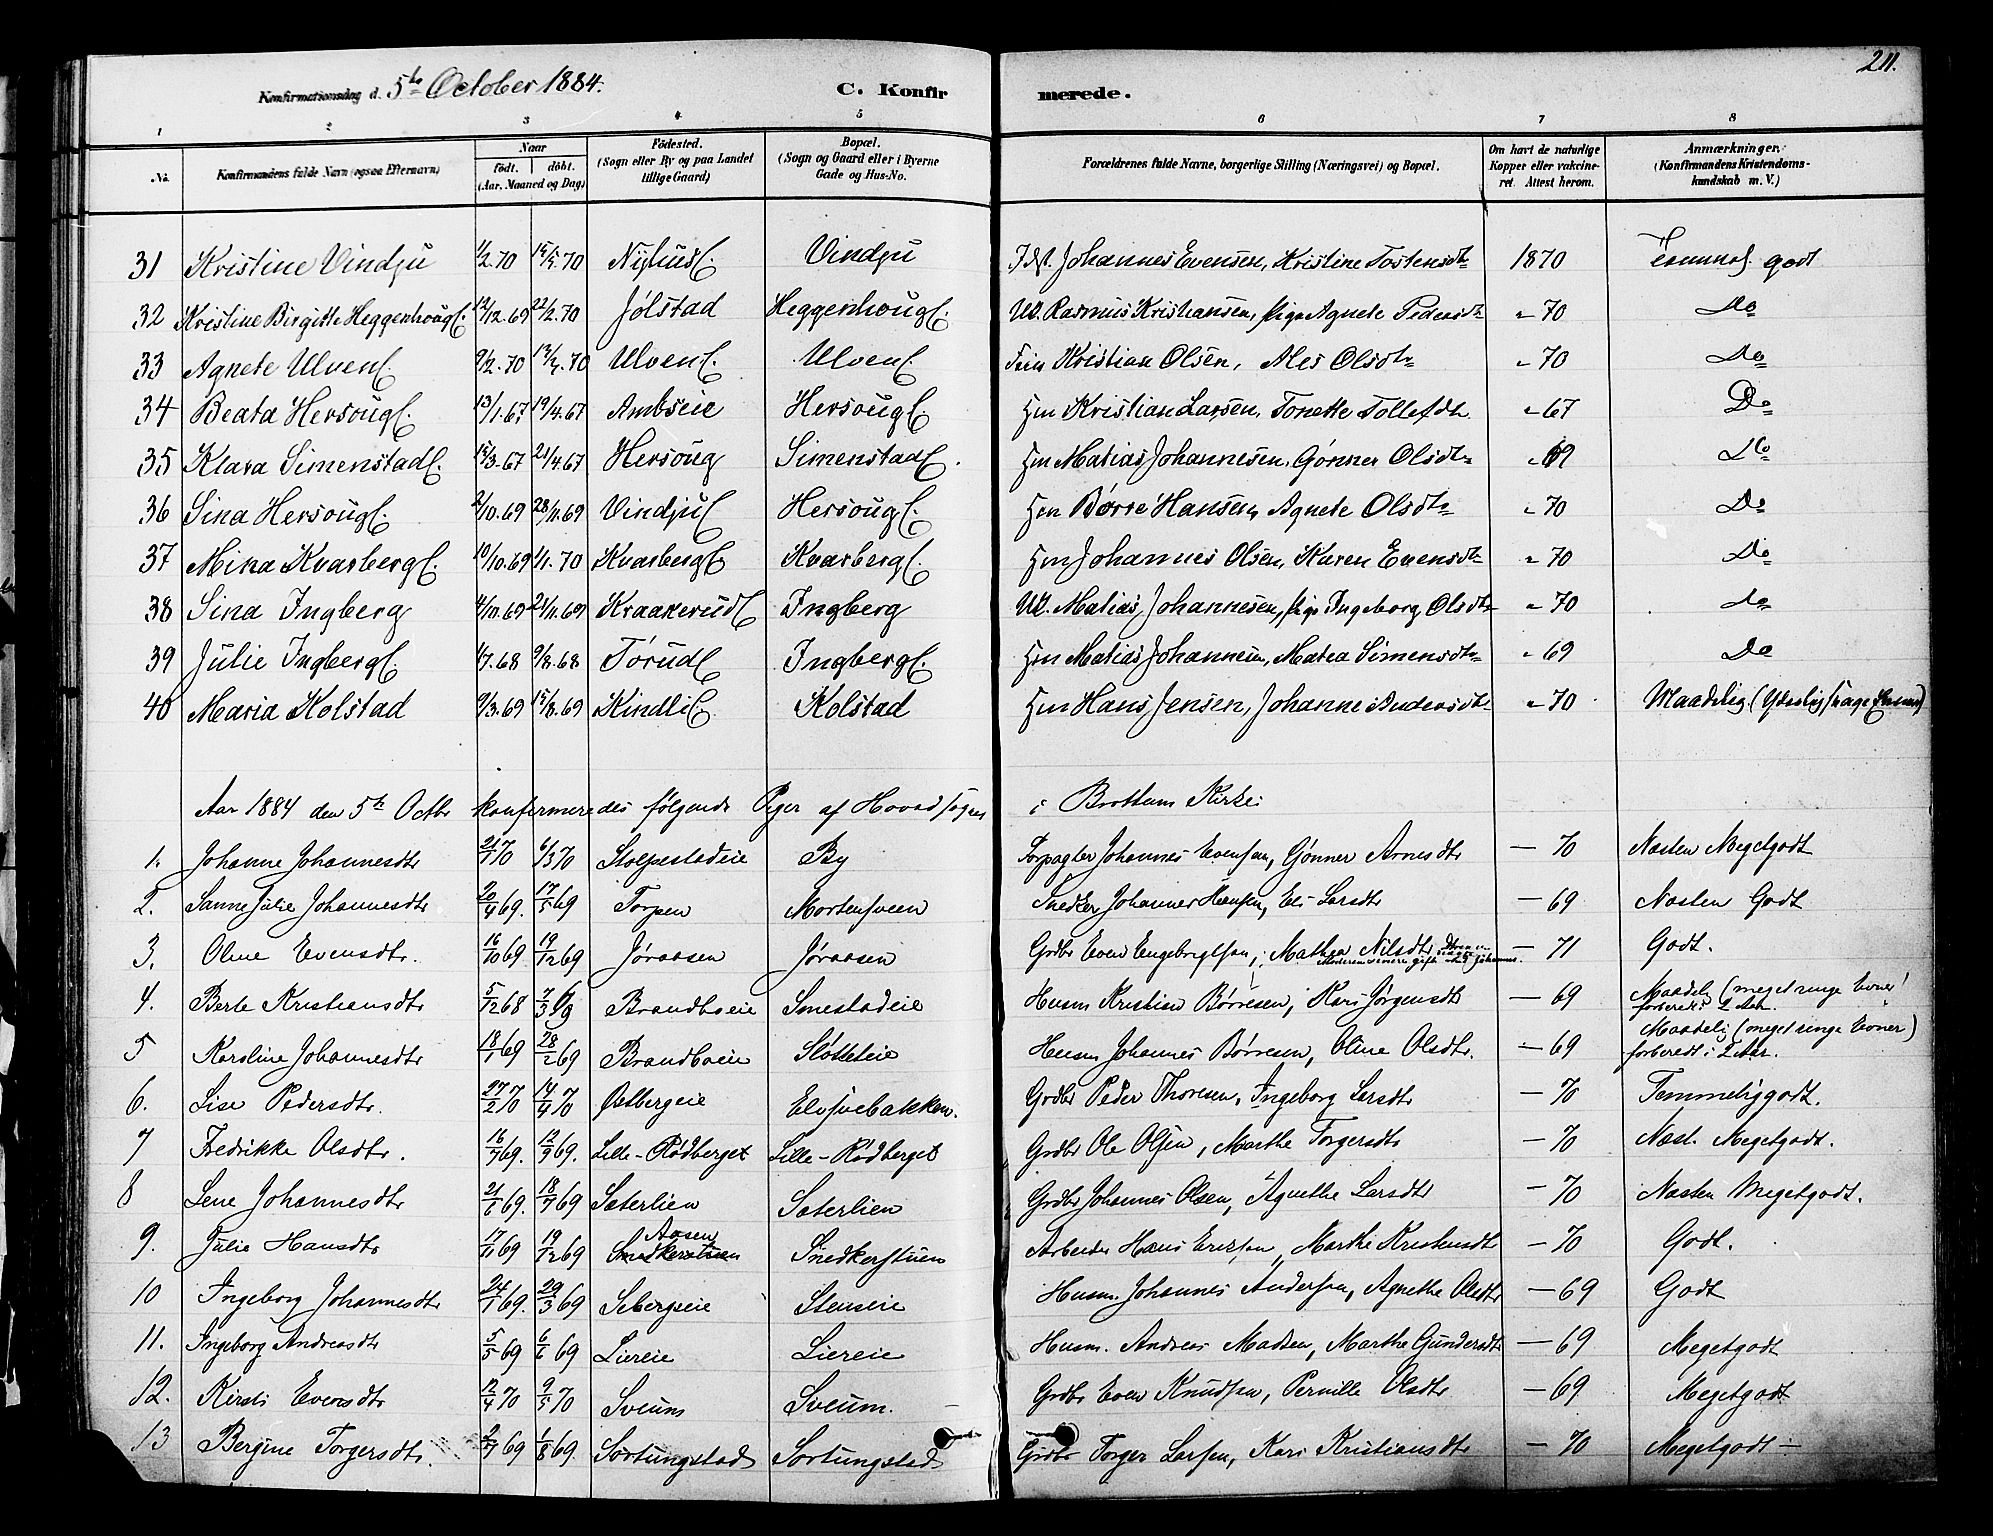 211.
Konfirmationsdag d. 5te October 1884. C. Konfirmerede.
1 2 3 4 5 6 7 8
No. Konfirmandens fulde Navn (ogsaa Efternavn) Naar födt. döbt. (Aar, Maaned og Dag) Födested. (Sogn eller By og paa Landet tillige Gaard) Bopæl. (Sogn og Gaard eller i Byerne Gade og Hus-No. Forældrenes fulde Navne, borgerlige Stilling (Næringsvei) og Bopæl. Om havt de naturlige Kopper eller vakcineret. Attest herom. Anmærkninger. (Konfirmandens Kristendomskundskab m. V.)
31 Kristine Vindju 1/2.70 70 Vindju Johannes Evensen, Kristine Tostensdtr 1870 Temmel. godt
32 Kristine Birgitte HeggenhougE. 12/12.69 22/2.70 Jølstad HeggenhougE. Rasmus Kristiansen, Pige Agnete Pedersdtr " 70 Do
33 Agnete UlvenE. 9/2.70 70 UlvenE. UlvenE. Kristian Olsen, Ales Olsdtr " 70 Do
34 Beata HersougE. 13/1.67 19/4.67 Ambseie HersougE Hm Kristian Larsen, Tonette Tollefsdtr " 67 Do
35 Klara SimenstadE. 15/3.67 21/4.67 Hersoug SimenstadE. Hm Matias Johannesen, Gønner Olsdtr " 69 Do
36 Sina HersougE. 2/10.69 28/11.69 VindjuE HersougE. Hm Børre Hansen, Agnete Olsdtr " 70 Do
37 Mina KvarbergE. 10/10.69 1/1.70 KvarbergE KvarbergE. Hm Johannes Olsen, Karen Evensdtr " 70 Do
38 Sina Ingberg 4/10.69 21/11.69 KraakerudE Ingberg Matias Johannesen, Pige Ingeborg Olsdtr " 70 do
39 Julie IngbergE. 4/7.68 9/8.68 TorudE IngbergE. Hm Matias Johannesen, Matea Simensdtr " 69 Do
40 Maria Kolstad 9/3.69 15/8.69 KindliE. Kolstad Hm Hans Jensen, Johanne " 70 Maadelig (Yderlig svage Evner)
Aar 1884 den 5te Octbr konfirmeredes følgende Piger af Hovedsognet i Brøttum Kirke:
1. Johanne Johannesdtr 21/1 70 6/3 70 Stolpestadeie By Johannes Evensen, Gønner Arnesdtr — 70 Næsten Megetgodt
2. Julie Johannesdtr 20/4 69. 17/5 69 Torpen Mortensveen Snedker Johannes Hansen, Eli Larsdtr — 69 Næsten Godt
3. Oline Evensdtr. 16/10 69 19/12 69 Jøraasen Jøraasen Grdbr Even Engebrigtsen, Mathea Nilsdtr — 71 Godt.
4. Berte Kristiansdtr 5/12 68 7/3 69 Brandboeie Smestadeie Husm Kristian Børresen, Kari Jørgensdtr — 69 Maadel. (meget ringe Evner) forberedt i 2 Aar.
5 Karoline Johannesdtr 18/1 69 28/2 69 Brandboeie Slotteeie Husm Johannes Børresen, Oline Olsdtr. — 69 Maadelig (meget ringe Evner) forberedt i 2 Aar.
6. Lise Pedersdtr. 27/2 70 14/4 70 Østbergeie Elvsvebakken. Grdbr Peder Thoresen, Ingeborg Larsdtr — 70 Temmeliggodt.
7 Fredrikke Olsdtr. 16/7 69. 12/9 69. Lille-Rødberget Lille-Rødberget Grdbr Ole Olsen, Marthe Torgersdtr — 70 Næst. Megetgodt.
8 Lene Johannesdtr 21/6 69. 18/7 69 Sæterlien Sæterlien Grdbr Johannes Olsen, Agnethe Larsdtr — 70 Næsten Megetgodt.
9. Julie Hansdtr 17/11 69 19/12 69 Aasen Snedkerstuen Snedkerstuen Arbeider Hans Eriksen, Marthe Kristensdtr — 70 Godt.
10 Ingeborg Johannesdtr 24/1 69. 29/3 69 Sebergseie Stenseie Husm. Johannes Andersen, Agnethe Olsdtr — 69 Godt
11. Ingeborg Andreasdtr 5/5 69 6/6 69 Liereie Liereie Husm. Andreas Madsen, Marthe Gundersdtr — 69 Megetgodt
12. Kirsti Evensdtr 12/4 70 9/5 70 Sveum Sveum. Grdbr Even Knudsen, Pernille Olsdtr — 69 Megetgodt
13 Bergine Torgersdtr. 2/7 69 1/8 69. Sørtungstad Sørtungstad Grdbr Torger Larsen, Kari Kristiansdtr — 70 Megetgodt —